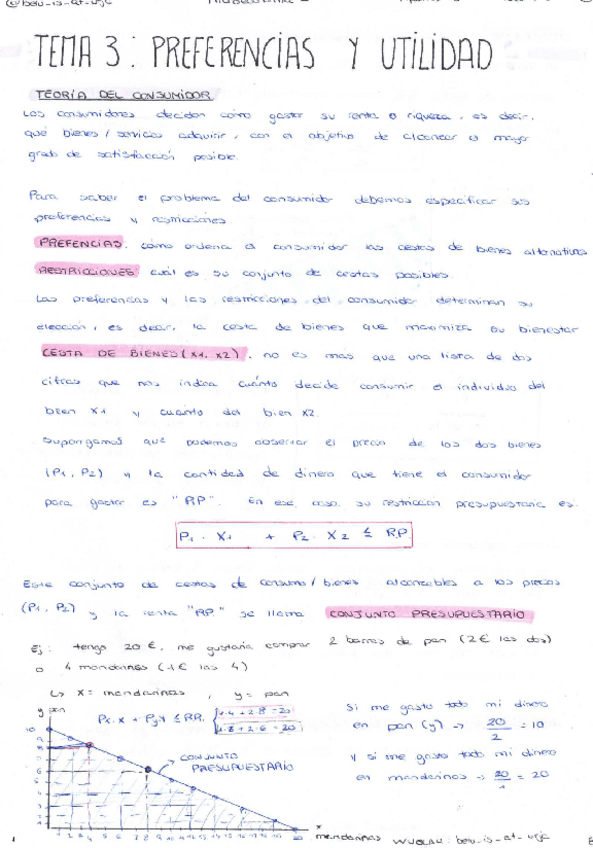 @beu_is_at_urjc
TEMA 3: PREFERENCIAS Y UTILIDAD
TEORÍA DEL CONSUMIDOR
Los consumidores deciden cómo gastar su renta o riqueza, es decir,
qué bienes/servicios adquirir, con el objetivo de alcanzar el mayor
grado de satisfacción posible.
Para saber el problema del consumidor debemos especificar sus
preferencias y restricciones
PREFENCIAS: cómo ordena el consumidor las cestas de bienes alternativas
RESTRICCIONES: cuál es su conjunto de cestas posibles.
Las preferencias y las restricciones del consumidor determinan su
elección, es decir, la cesta de bienes que maximiza su bienestar
CESTA DE BIENES (X1, X2): no es más que una lista de dos
cifras que nos indica cuánto decide consumir el individuo del
bien X1 y cuánto del bien X2.
Supongamos que podemos observar el precio de los dos bienes
(P1, P2) y la cantidad de dinero que tiene el consumidor
para gastar es "RP". En ese caso, su restricción presupuestaria es:
P1 · X1 + P2 · X2 ≤ RP
Este conjunto de cestas de consumo/bienes alcanzables a los precios
(P1, P2) y la renta "RP" se llama CONJUNTO PRESUPUESTARIO
Ej: tengo 20 €, me gustaría comprar 2 barras de pan (2€ las dos)
o 4 mandarinas (1€ las 4)
↳ X = mandarinas, y = pan
y pan
Px · X + Py Y ≤ RP
1·4 + 2·8 = 20
1·8 + 2·6 = 20
CONJUNTO
PRESUPUESTARIO
Si me gasto todo mi dinero
en pan (y) → 20/2 = 10
Y si me gasto todo mi dinero
en mandarinas → 20/1 = 20
x
mandarinas
WUOLAH: beu_is_at_urjc